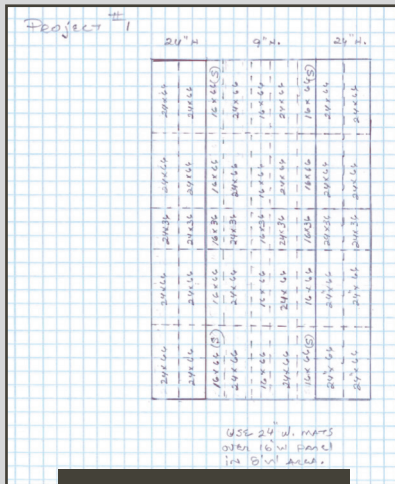 Project #1
24" H. 9" H. 24" H.
24x66 24x66 16x66(S) 24x66 16x66 24x66 16x66(S) 24x66 24x66
24x66 24x66 16x66 24x66 16x66 24x66 16x66 24x66 24x66
24x36 24x36 16x36 24x36 16x36 24x36 16x36 24x36 24x36
24x66 24x66 16x66 24x66 16x66 24x66 16x66 24"x66 24"x66
24x66 24x66 16x66(S) 24x66 16x66 24x66 16x66(S) 24"x66 24"x66
USE 24" W. mats
over 16" W panel
in